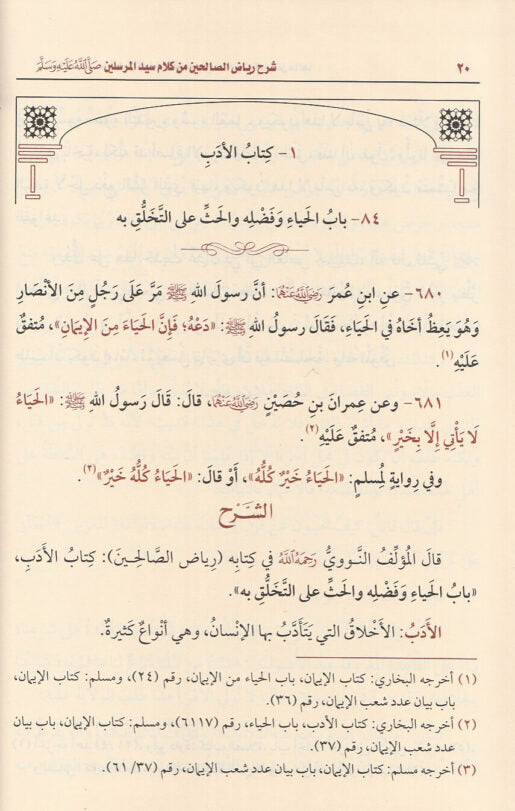 ٢٠ شرح رياض الصالحين من كلام سيد المرسلين صَلَّى اللَّهُ عَلَيْهِ وَسَلَّمَ
١- كِتَابُ الأَدَبِ
٨٤- بابُ الحَياءِ وَفَضْلِه والحَثِّ على التَّخَلُّقِ به
٦٨٠- عن ابنِ عُمَرَ رَضِيَ اللَّهُ عَنْهُمَا: أنَّ رسولَ اللهِ ﷺ مَرَّ عَلَى رَجُلٍ مِنَ الأَنْصَارِ
وَهُوَ يَعِظُ أخَاهُ في الحَيَاءِ، فَقَالَ رسُولُ اللهِ ﷺ: «دَعْهُ؛ فَإِنَّ الحَيَاءَ مِنَ الإِيمَانِ»، مُتفقٌ
عَلَيْهِ(١).
٦٨١- وعن عِمرانَ بنِ حُصَيْنٍ رَضِيَ اللَّهُ عَنْهُمَا، قالَ: قَالَ رَسُولُ اللهِ ﷺ: «الحَيَاءُ
لَا يَأْتِي إِلَّا بِخَيْرٍ»، مُتفقٌ عَلَيْهِ(٢).
وفي رِوايةٍ لمُسلمٍ: «الحَيَاءُ خَيْرٌ كُلُّهُ»، أَوْ قالَ: «الحَيَاءُ كُلُّهُ خَيْرٌ»(٣).
الشَّرْح
قالَ المُؤلِّفُ النَّوويُّ رَحِمَهُ اللَّهُ في كتابِه (رِياضِ الصَّالحِينَ): كتابُ الأَدَبِ،
«بابُ الحَياءِ وَفَضْلِه والحَثِّ على التَّخَلُّقِ به».
الأَدَبُ: الأَخْلاقُ التي يَتَأَدَّبُ بها الإنسانُ، وهي أنواعٌ كَثيرةٌ.
(١) أخرجه البخاري: كتاب الإيمان، باب الحياء من الإيمان، رقم (٢٤)، ومسلم: كتاب الإيمان،
باب بيان عدد شعب الإيمان، رقم (٣٦).
(٢) أخرجه البخاري: كتاب الأدب، باب الحياء، رقم (٦١١٧)، ومسلم: كتاب الإيمان، باب بيان
عدد شعب الإيمان، رقم (٣٧).
(٣) أخرجه مسلم: كتاب الإيمان، باب بيان عدد شعب الإيمان، رقم (٦١/٣٧).